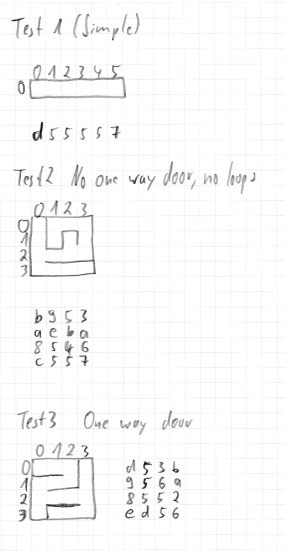 Test 1 (Simple)
0 1 2 3 4 5
0
d 5 5 5 5 7
Test2 No one way door, no loops
0 1 2 3
0
1
2
3
b 9 5 3
a c b a
8 5 4 6
c 5 5 7
Test3 One way door
0 1 2 3
0
1
2
3
d 5 3 b
9 5 6 a
8 5 5 2
e d 5 6